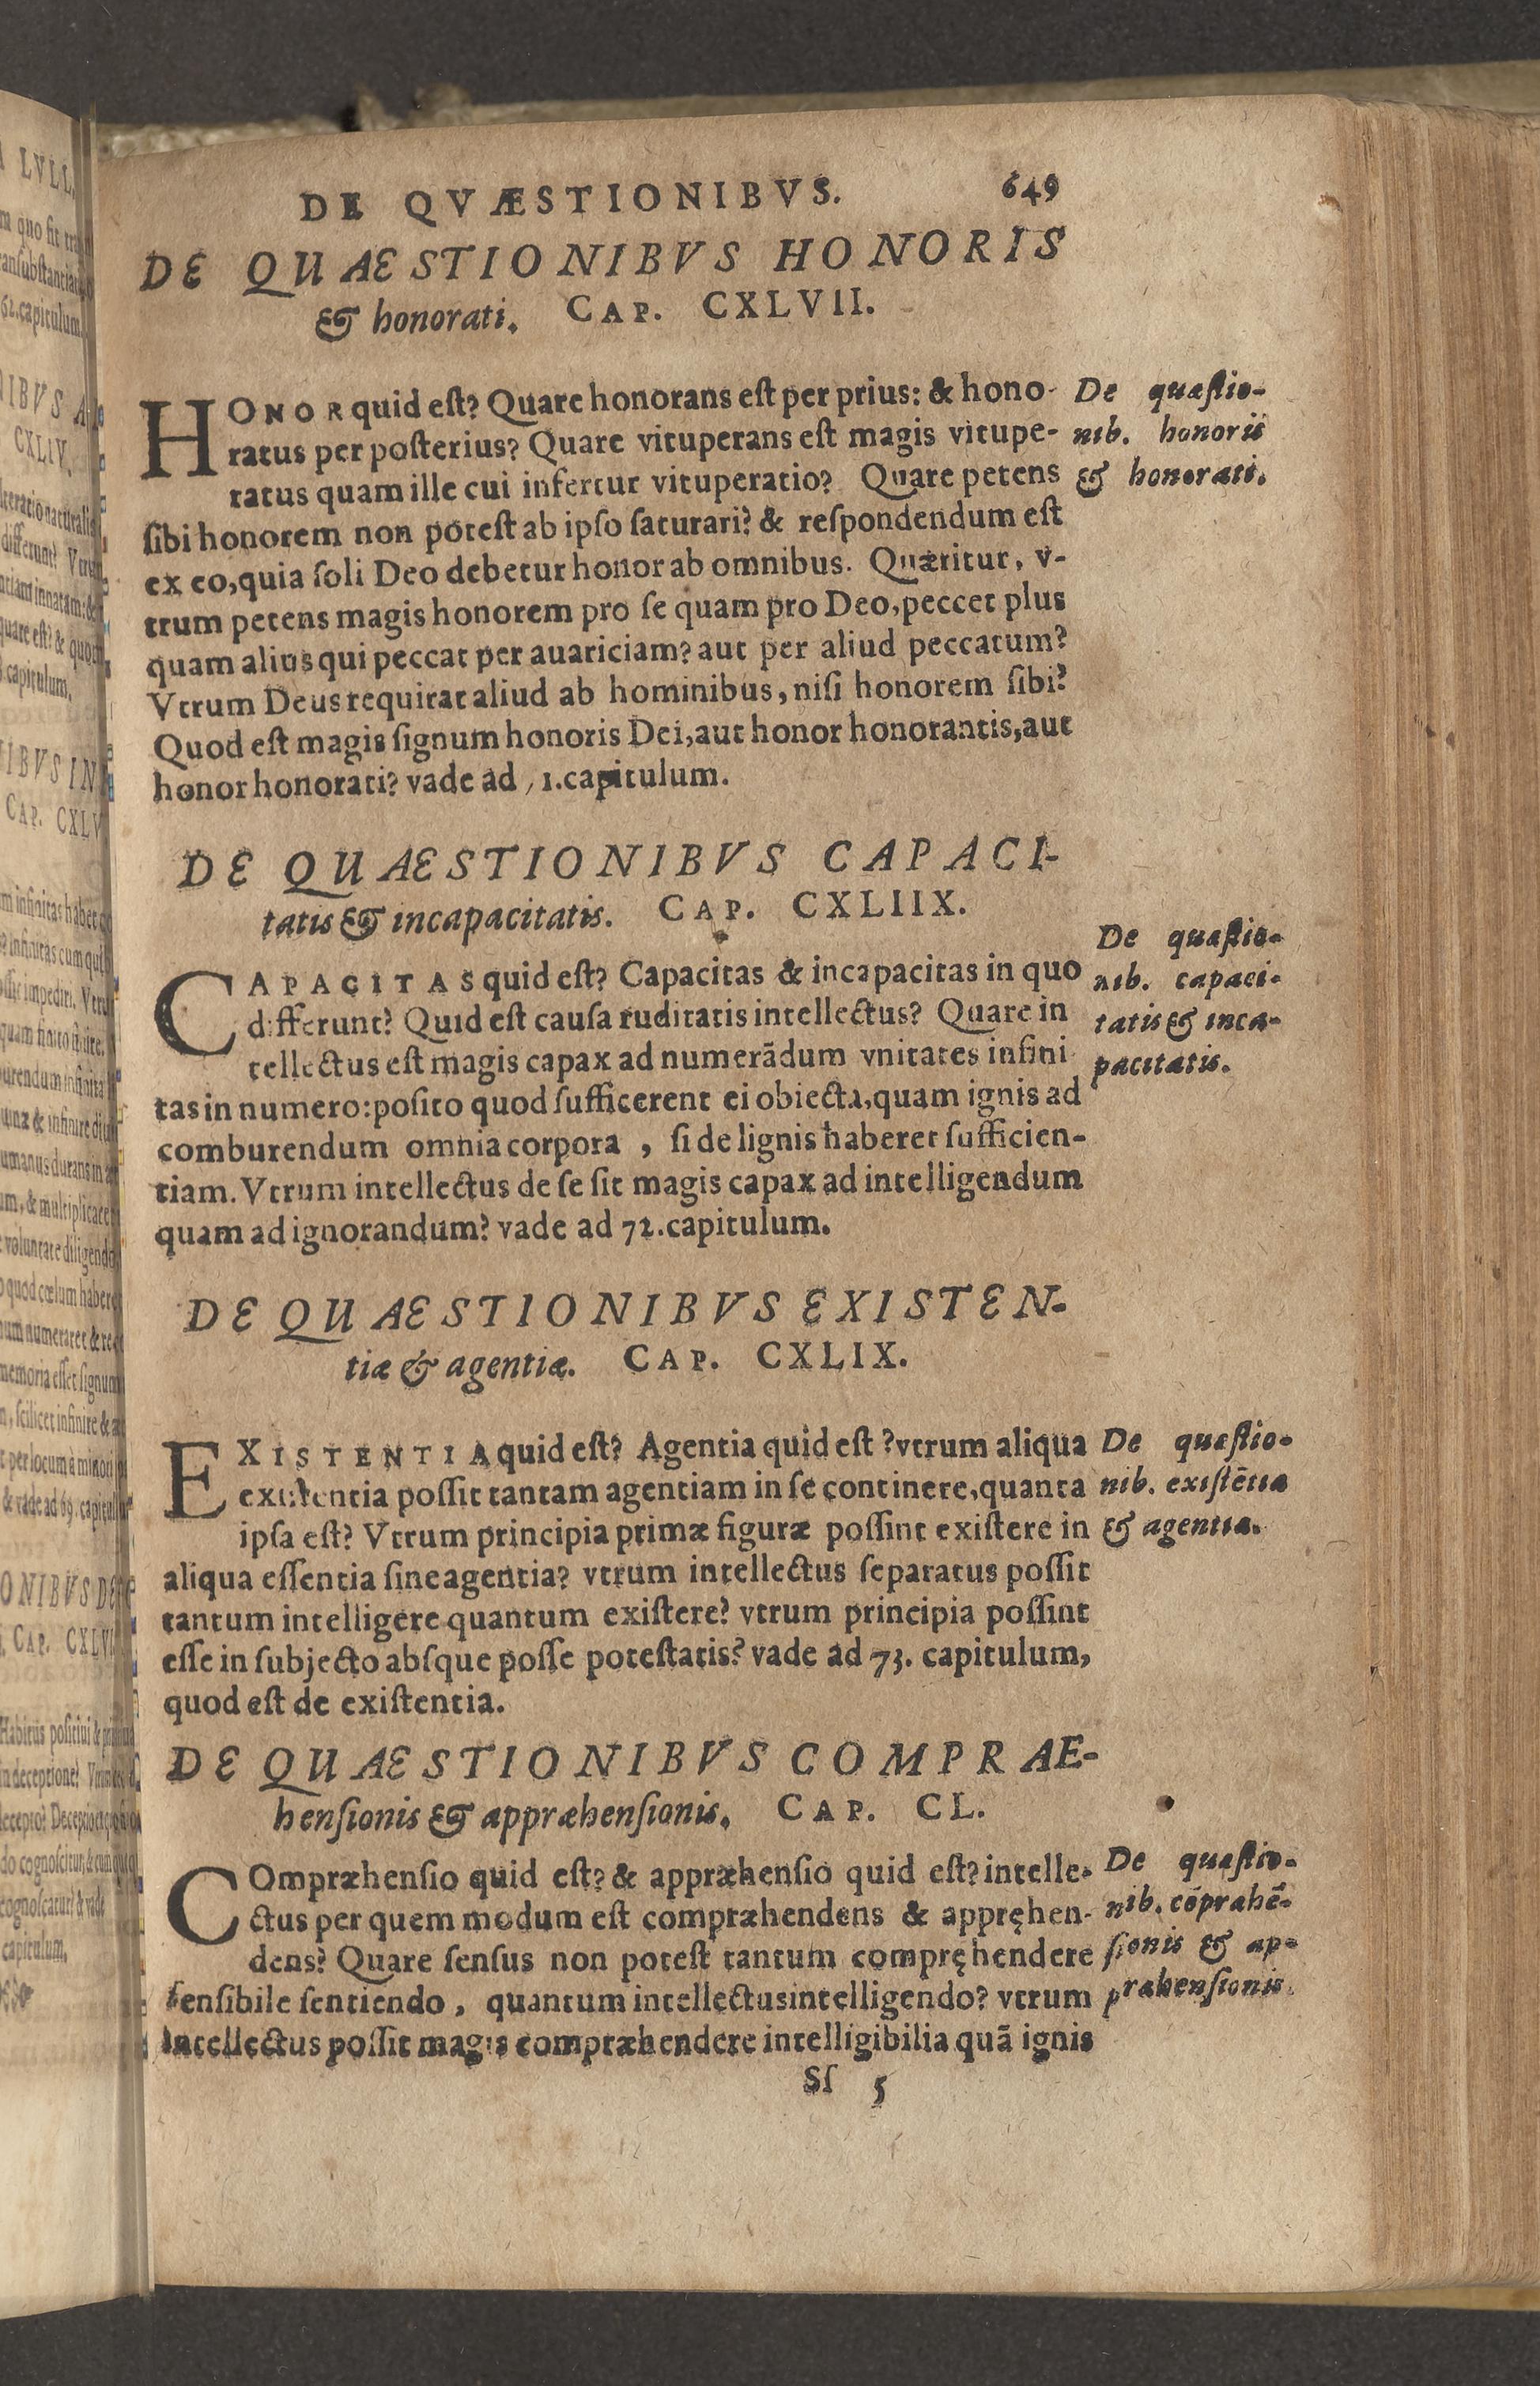 DE QVÆSTIONIBVS. 649
DE QUAESTIONIBVS HONORIS
& honorati. CAP. CXLVII.
HONOR quid eſt? Quare honorans eſt per prius: & hono-
ratus per poſterius? Quare vituperans eſt magis vitupe-
ratus quam ille cui infertur vituperatio? Quare petens
ſibi honorem non poteſt ab ipſo ſaturari? & reſpondendum eſt
ex eo, quia ſoli Deo debetur honor ab omnibus. Quæritur, v-
trum petens magis honorem pro ſe quam pro Deo, peccet plus
quam alius qui peccat per auariciam? aut per aliud peccatum?
Vtrum Deus requirat aliud ab hominibus, niſi honorem ſibi?
Quod eſt magis ſignum honoris Dei, aut honor honorantis, aut
honor honorati? vade ad 71. capitulum.
De quæſtio-
nib. honoris
& honorati.
DE QUAESTIONIBVS CAPACI-
tatis & incapacitatis. CAP. CXLIIX.
CAPACITAS quid eſt? Capacitas & incapacitas in quo
differunt? Quid eſt cauſa ruditatis intellectus? Quare in
tellectus eſt magis capax ad numerādum vnitates infini
tas in numero: poſito quod ſufficerent ei obiecta, quam ignis ad
comburendum omnia corpora, ſi de lignis haberet ſufficien-
tiam. Vtrum intellectus de ſe ſit magis capax ad intelligendum
quam ad ignorandum? vade ad 72. capitulum.
De quæſtio-
nib. capaci-
tatis & inca-
pacitatis.
DE QUAESTIONIBVS EXISTEN-
tiæ & agentiæ. CAP. CXLIX.
EXISTENTIA quid eſt? Agentia quid eſt? vtrum aliqua
exiſtentia poſſit tantam agentiam in ſe continere, quanta
ipſa eſt? Vtrum principia primæ figuræ poſſint exiſtere in
aliqua eſſentia ſine agentia? vtrum intellectus ſeparatus poſſit
tantum intelligere quantum exiſtere? vtrum principia poſſint
eſſe in ſubjecto abſque poſſe poteſtatis? vade ad 73. capitulum,
quod eſt de exiſtentia.
De quæſtio-
nib. exiſtētia
& agentia.
DE QUAESTIONIBVS COMPRAE-
henſionis & appræhenſionis. CAP. CL.
COmpræhenſio quid eſt? & appræhenſio quid eſt? intelle-
ctus per quem modum eſt compræhendens & appręhen-
dens? Quare ſenſus non poteſt tantum compręhendere
ſenſibile ſentiendo, quantum intellectus intelligendo? vtrum
intellectus poſſit magis compræhendere intelligibilia quā ignis
De quæſtio-
nib. cōprahē-
ſionis & ap-
prahenſionis.
Sſ 5